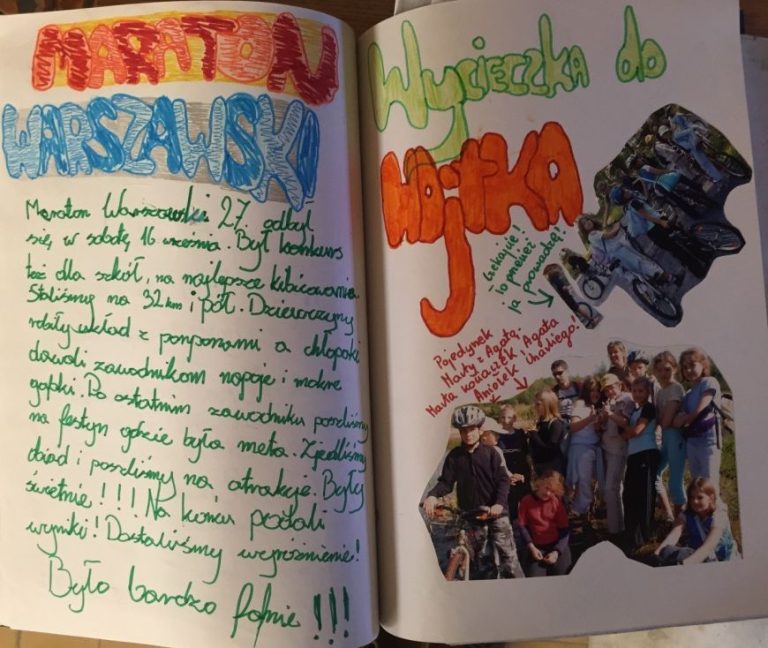 MARATON
WARSZAWSKI
Maraton Warszawski 27 odbył
się w sobotę 16 września. Był konkurs
też dla szkół, na najlepsze kibicowanie.
Staliśmy na 32 km i pół. Dziewczyny
robiły układ z pomponami a chłopaki
dawali zawodnikom napoje i mokre
gąbki. Po ostatnim zawodniku poszliśmy
na festyn gdzie była meta. Zjedliśmy
obiad i poszliśmy na atrakcje. Były
świetnie!!! Na końcu podali
wyniki! Dostaliśmy wyróżnienie!
Było bardzo fajnie!!!
Wycieczka do
Wojtka
czekajcie!
ja prowadzę!
Pojedynek
Marty z Agatą.
Marta Agata
Aniołek Charliego!